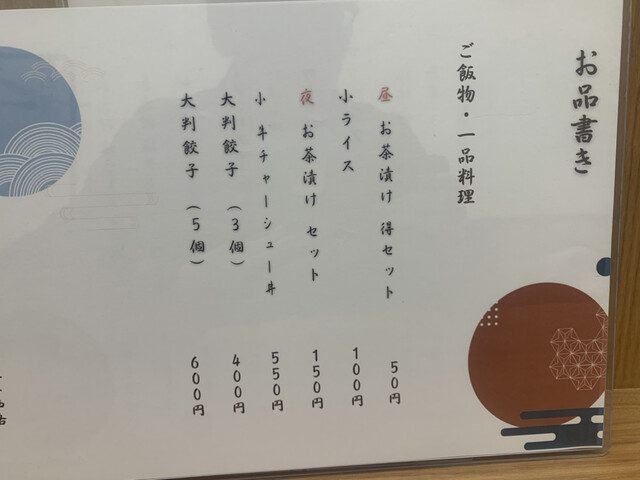 お品書き
ご飯物・一品料理
昼 お茶漬け 得セット 50円
小ライス 100円
夜 お茶漬け セット 150円
小 牛チャーシュー丼 550円
大判餃子 (3個) 400円
大判餃子 (5個) 600円